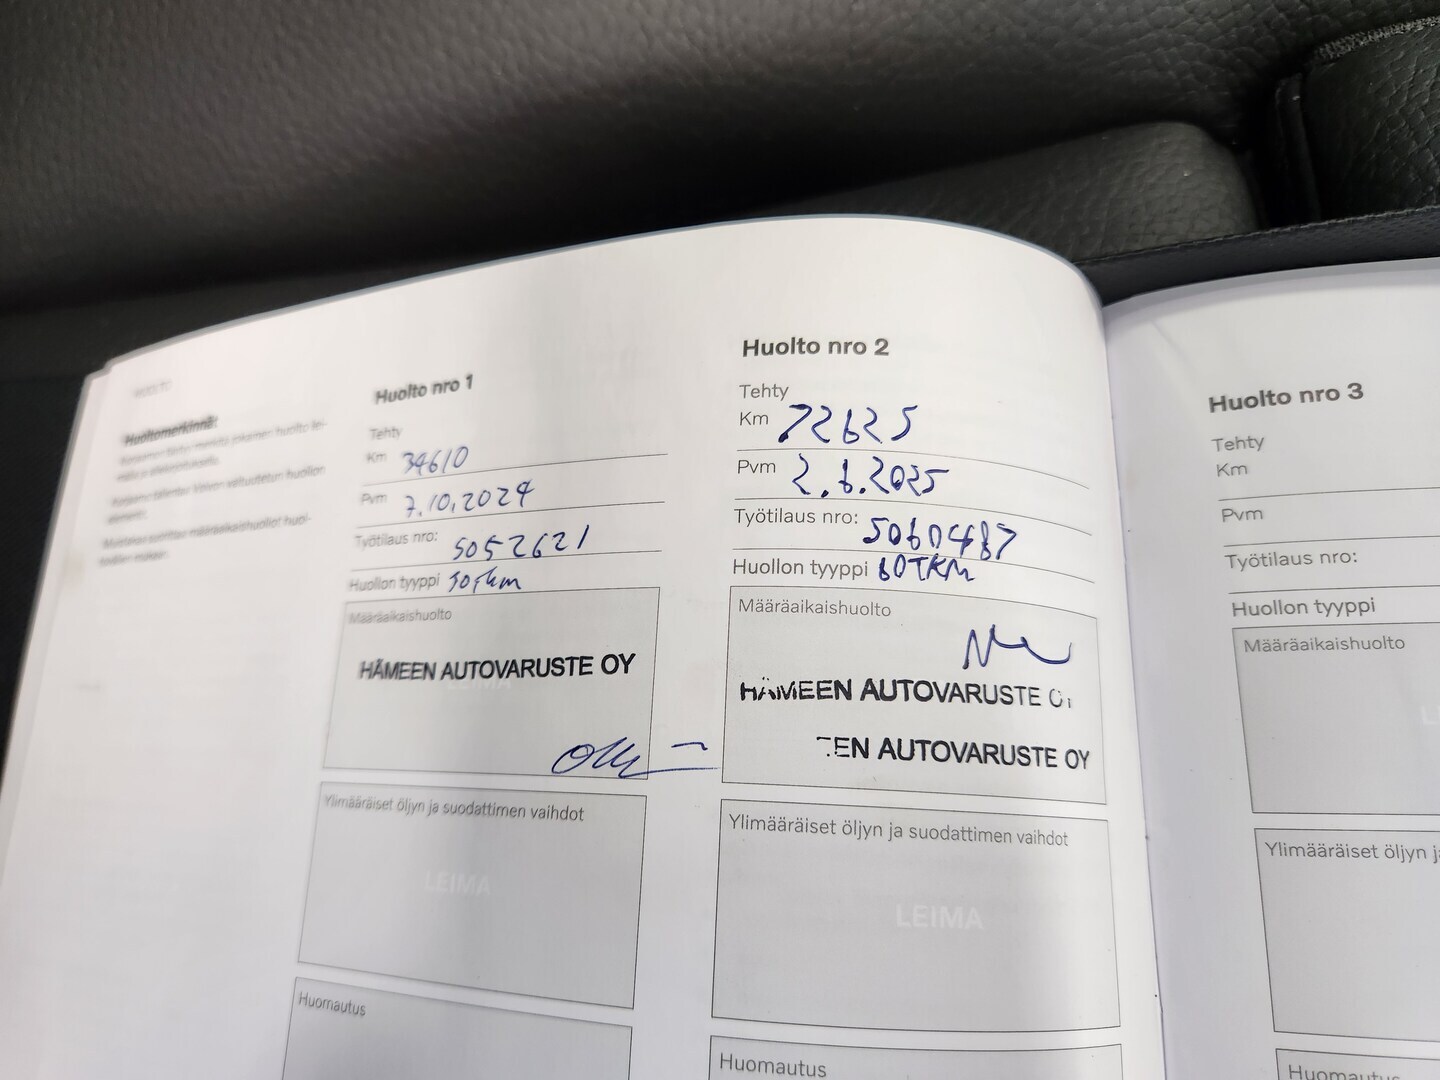 HUOLTO
Huoltomerkinnät
Huolto nro 1
Tehty
Km 34610
Pvm 7.10.2024
Työtilaus nro: 5052621
Huollon tyyppi 30Tkm
Määräaikaishuolto
HÄMEEN AUTOVARUSTE OY
LEIMA
Ylimääräiset öljyn ja suodattimen vaihdot
LEIMA
Huomautus
Huolto nro 2
Tehty
Km 72625
Pvm 2.6.2025
Työtilaus nro: 50604487
Huollon tyyppi 60TKM
Määräaikaishuolto
HÄMEEN AUTOVARUSTE OY
EN AUTOVARUSTE OY
Ylimääräiset öljyn ja suodattimen vaihdot
LEIMA
Huomautus
Huolto nro 3
Tehty
Km
Pvm
Työtilaus nro:
Huollon tyyppi
Määräaikaishuolto
Ylimääräiset öljyn j
Huomautus